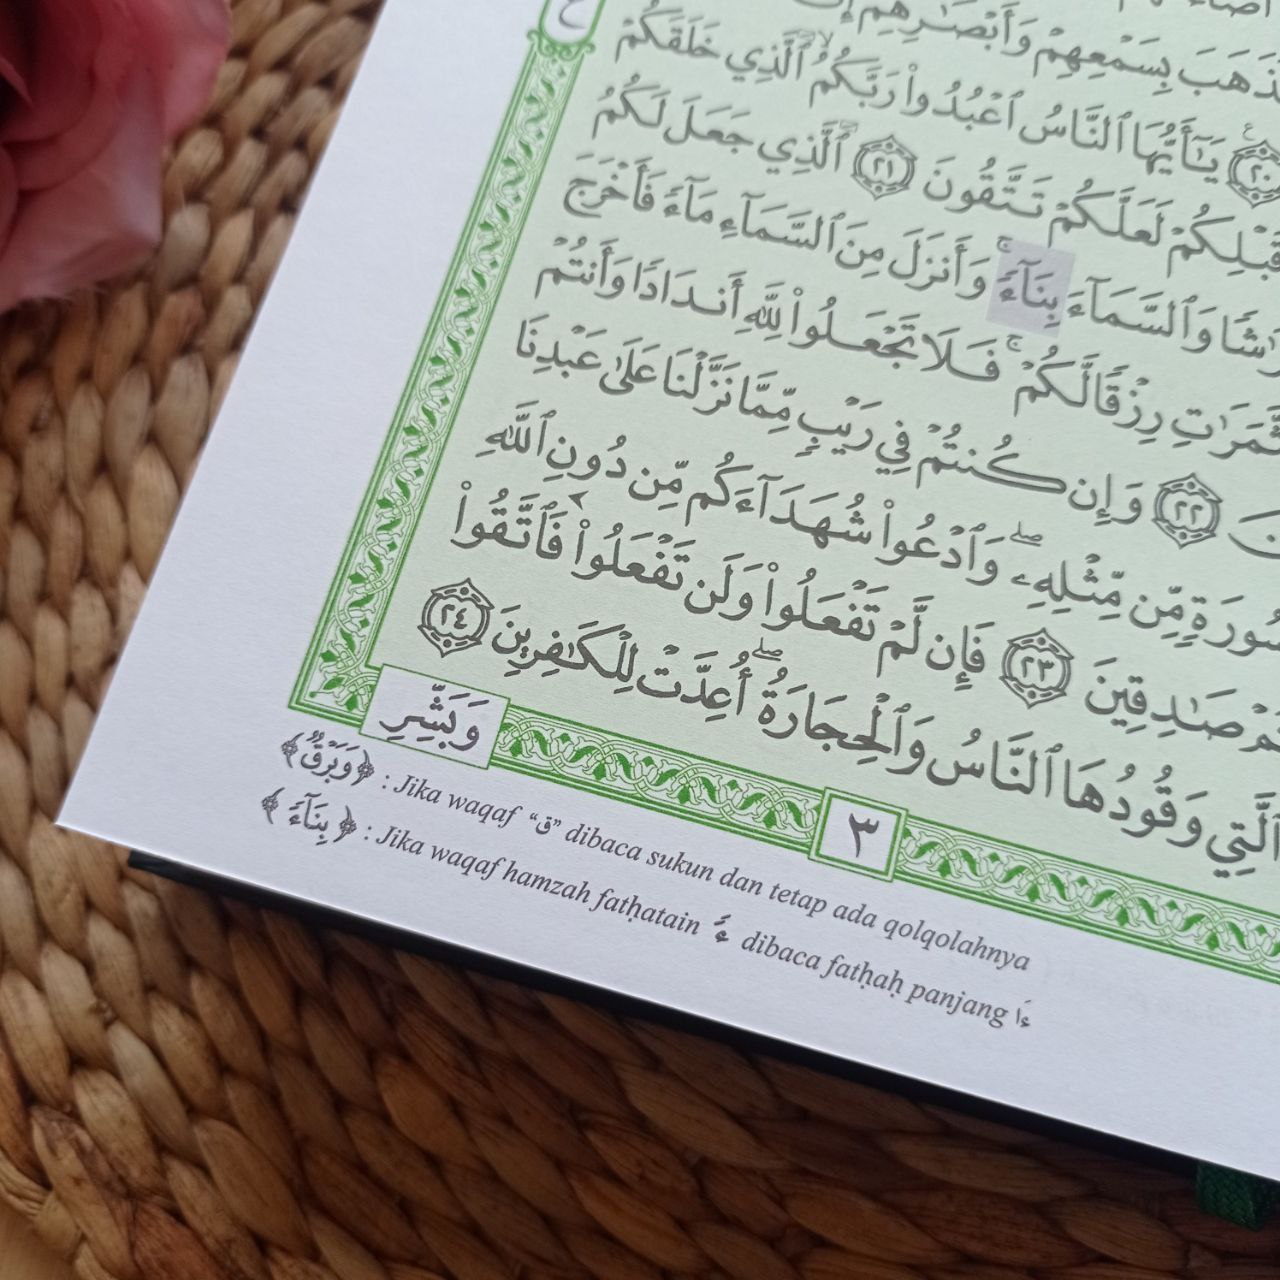 ع
بِسَمْعِهِمْ وَأَبْصَٰرِهِمْ
٢٠ يَٰٓأَيُّهَا ٱلنَّاسُ ٱعْبُدُوا۟ رَبَّكُمُ ٱلَّذِي خَلَقَكُمْ
قَبْلِكُمْ لَعَلَّكُمْ تَتَّقُونَ ٢١ ٱلَّذِي جَعَلَ لَكُمُ
وَٱلسَّمَآءَ بِنَآءً وَأَنزَلَ مِنَ ٱلسَّمَآءِ مَآءً فَأَخْرَجَ
رِزْقًا لَّكُمْ ۖ فَلَا تَجْعَلُوا۟ لِلَّهِ أَندَادًا وَأَنتُمْ
٢٢ وَإِن كُنتُمْ فِي رَيْبٍ مِّمَّا نَزَّلْنَا عَلَىٰ عَبْدِنَا
مِّن مِّثْلِهِۦ ۖ وَٱدْعُوا۟ شُهَدَآءَكُم مِّن دُونِ ٱللَّهِ
صَٰدِقِينَ ٢٣ فَإِن لَّمْ تَفْعَلُوا۟ وَلَن تَفْعَلُوا۟ فَٱتَّقُوا۟
ٱلَّتِي وَقُودُهَا ٱلنَّاسُ وَٱلْحِجَارَةُ ۖ أُعِدَّتْ لِلْكَٰفِرِينَ ٢٤
وَبَشِّرِ
٣
﴿وَبَرْقٌ﴾ : Jika waqaf “ق” dibaca sukun dan tetap ada qolqolahnya
﴿بِنَآءً﴾ : Jika waqaf hamzah fatḥatain ءً dibaca fatḥaḥ panjang ءَا